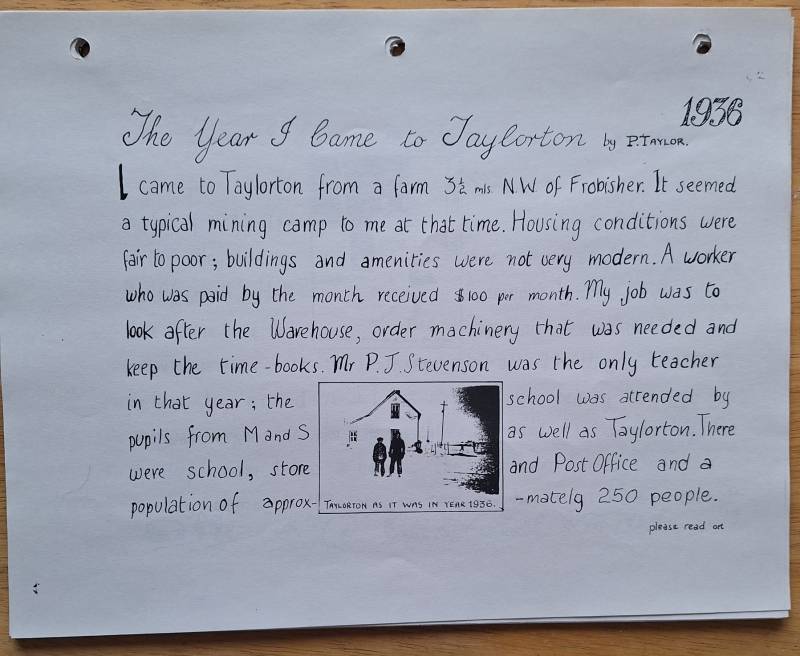 1936
The Year I Came to Taylorton by P. TAYLOR.
I came to Taylorton from a farm 3½ mls. NW of Frobisher. It seemed
a typical mining camp to me at that time. Housing conditions were
fair to poor; buildings and amenities were not very modern. A worker
who was paid by the month received $100 per month. My job was to
look after the Warehouse, order machinery that was needed and
keep the time-books. Mr P. J. Stevenson was the only teacher
in that year; the school was attended by
pupils from M and S as well as Taylorton. There
were school, store and Post Office and a
population of approx- -mately 250 people.
TAYLORTON AS IT WAS IN YEAR 1936.
please read on